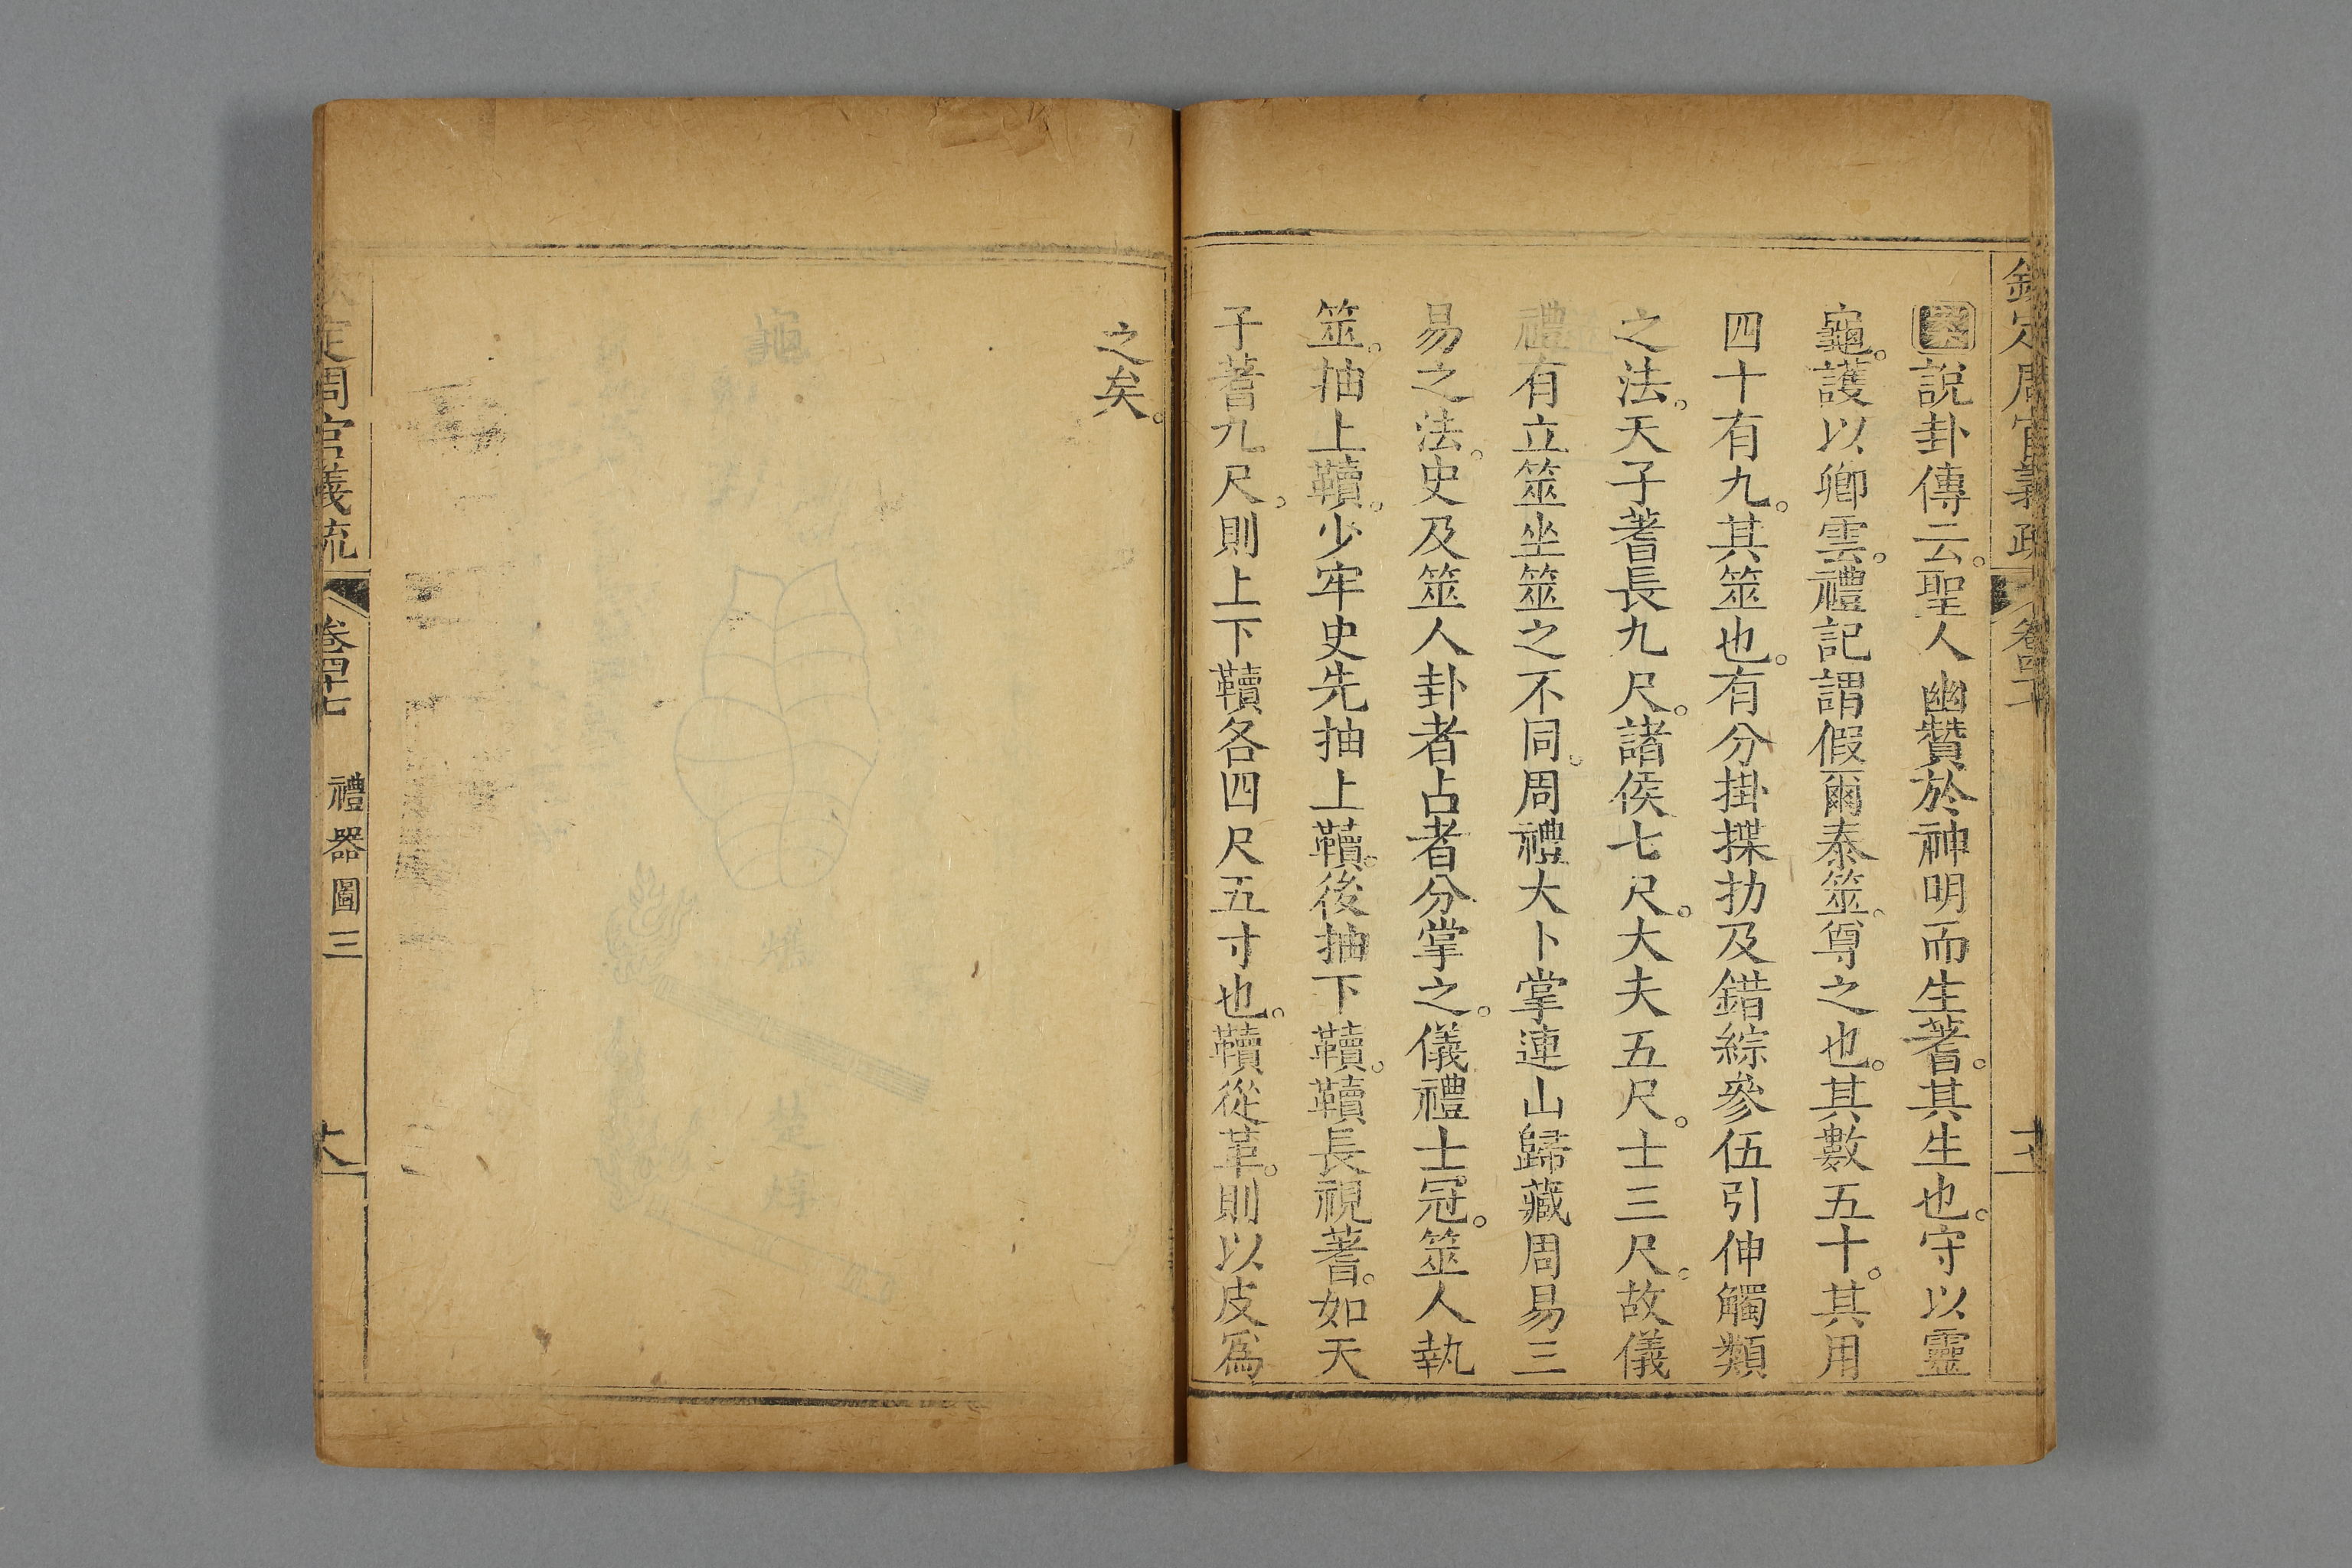 欽定周官義疏 卷四十
說卦傳云。聖人幽贊於神明而生蓍。其生也。守以靈
龜。護以卿雲。禮記謂假爾泰筮。尊之也。其數五十。其用
四十有九。其筮也。有分掛揲扐及錯綜參伍引伸觸類
之法。天子蓍長九尺。諸侯七尺。大夫五尺。士三尺。故儀
禮有立筮坐筮之不同。周禮大卜掌連山歸藏周易三
易之法。史及筮人卦者占者分掌之。儀禮士冠。筮人執
筮。抽上韇。少牢史先抽上韇。後抽下韇。韇長視蓍。如天
子蓍九尺。則上下韇各四尺五寸也。韇從革。則以皮為
之矣。
定周官義疏 卷四十七 禮器圖三